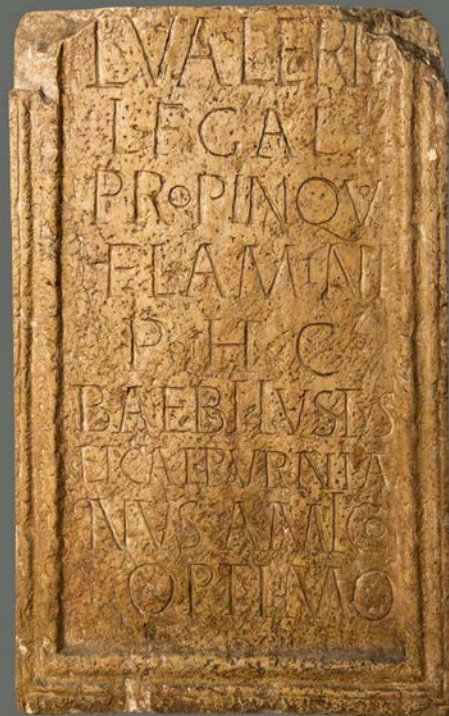 L VALERIO
L F GAL
PROPINQVO
FLAMINI
P · H · C
BAEBII IVSTVS
ET CALPVRNIA
NVS AMICO
OPTIMO